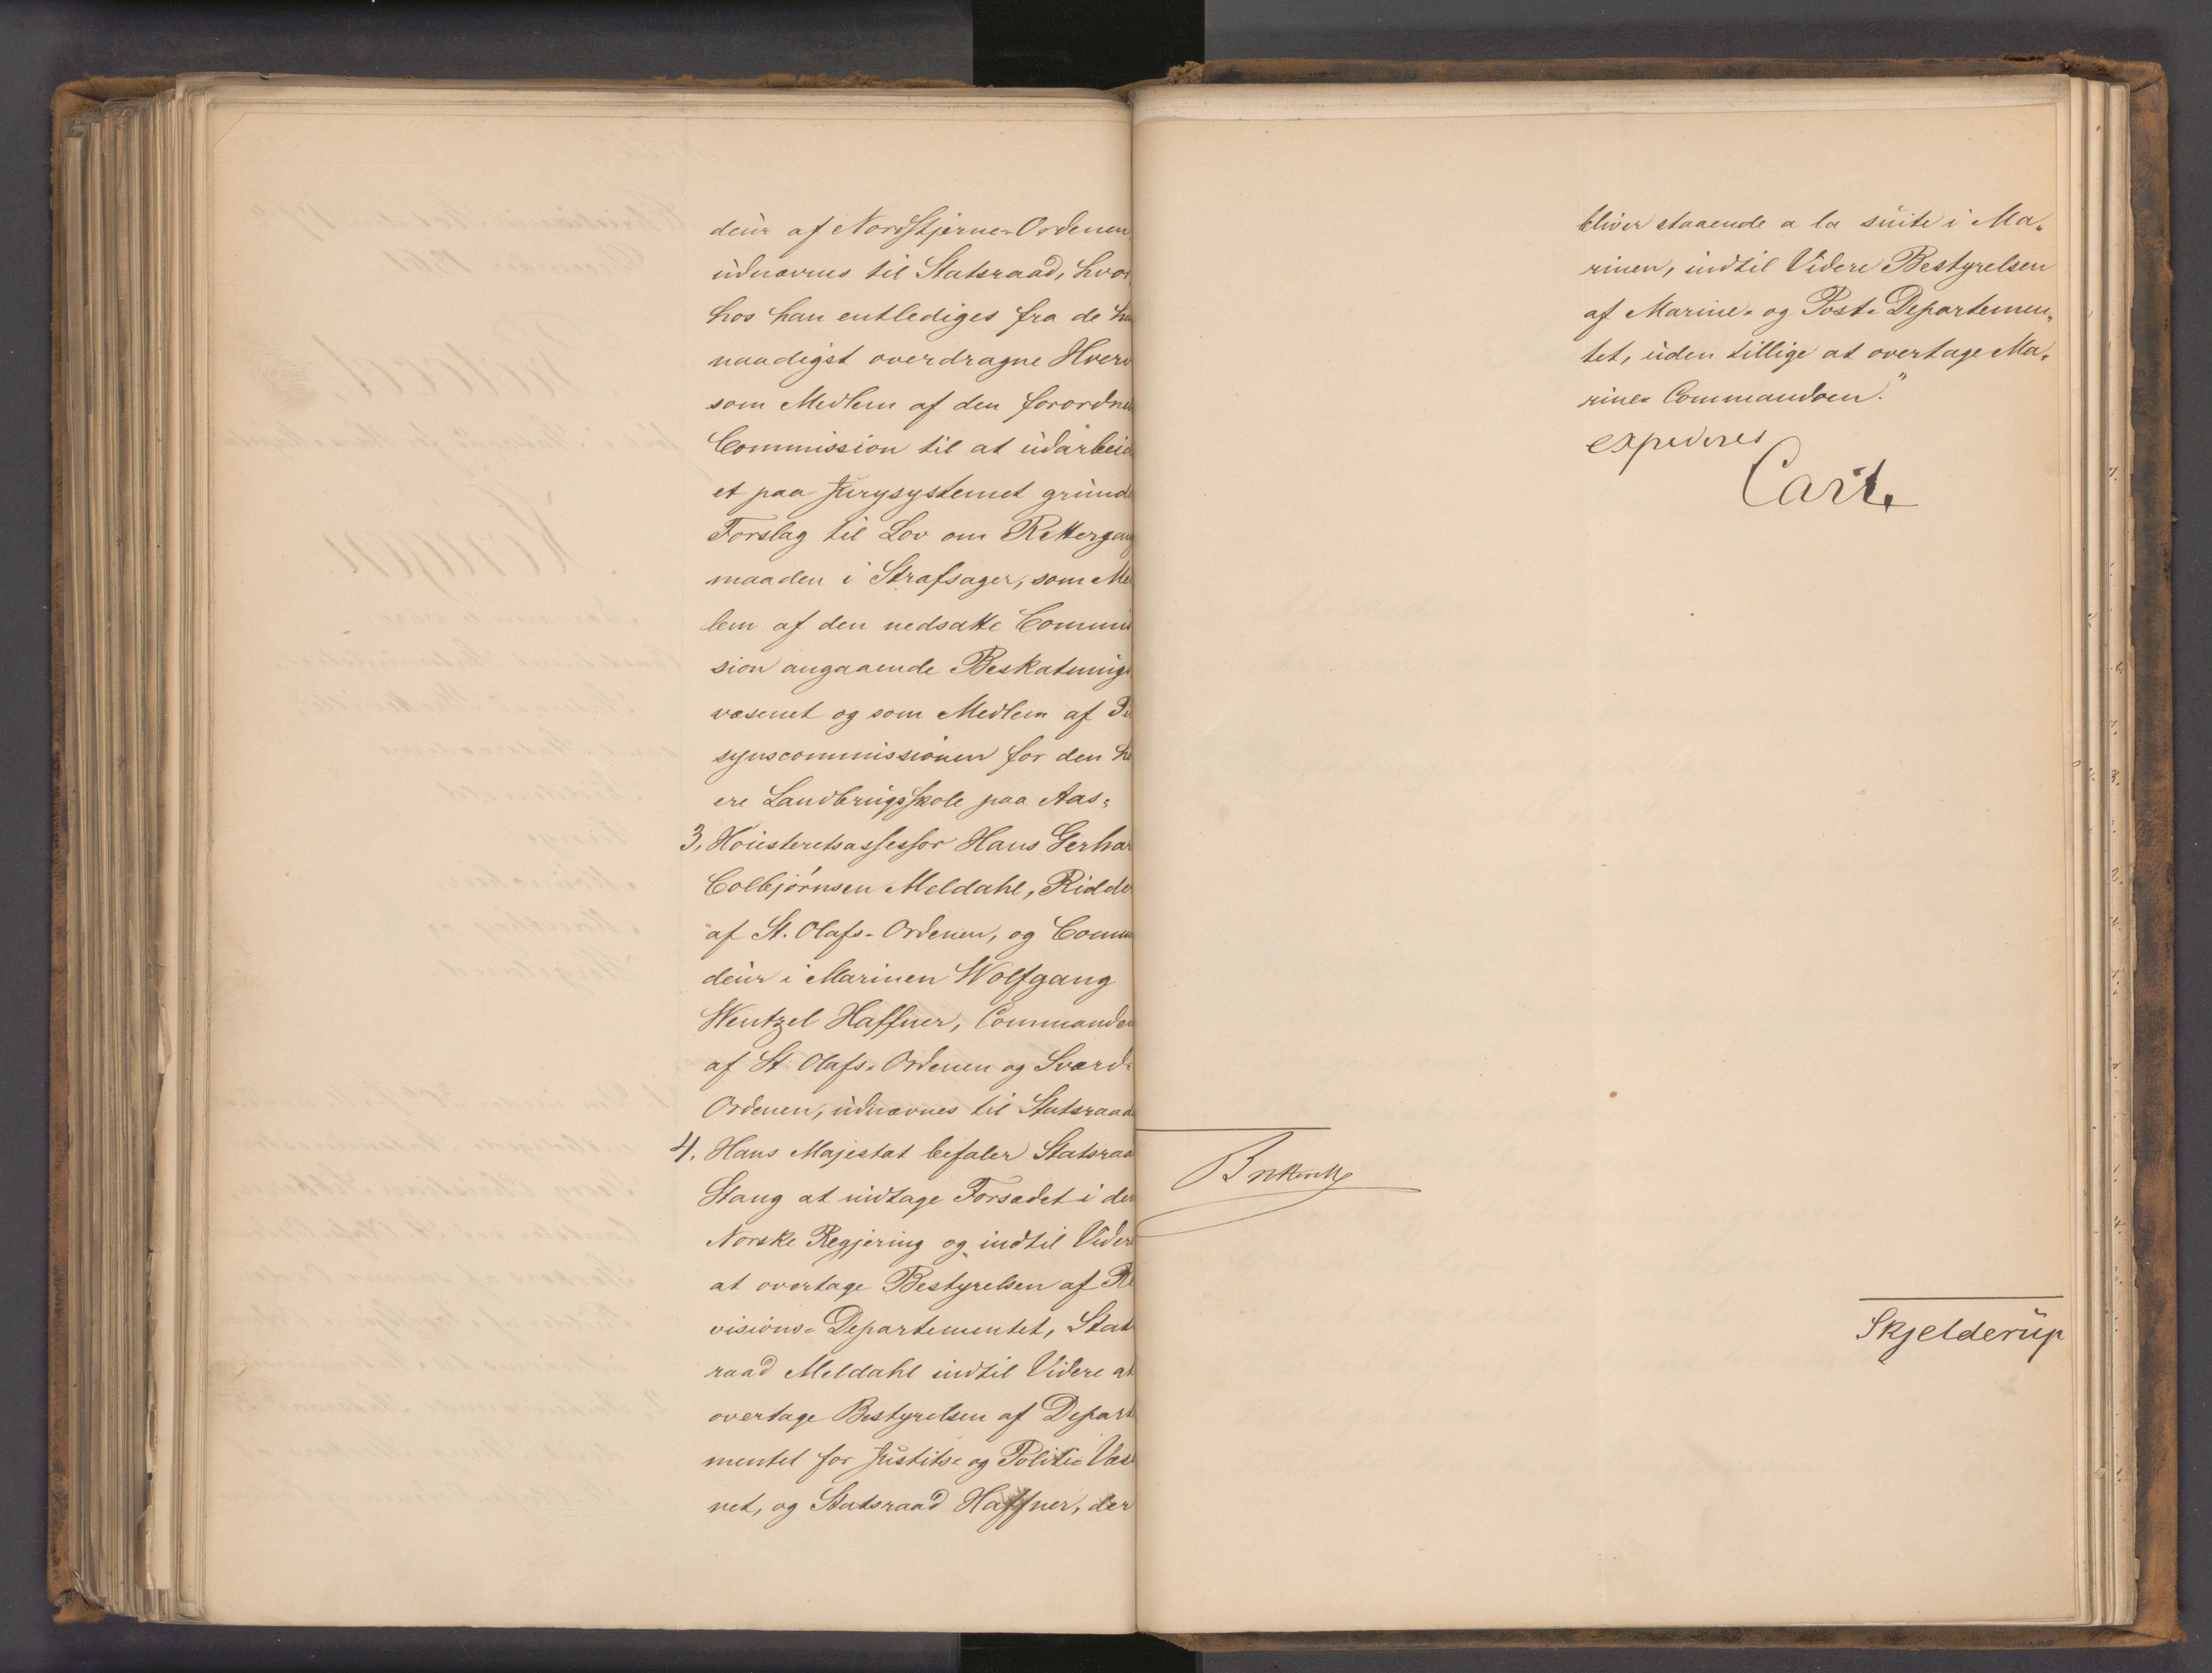 deur af Nordstjerne-Ordenen
udnævnes til Statsraad, hvor
hos han entlediges fra de ha
naadigst overdragne Hverv
som Medlem af den forordne
Commission til at udarbeid
et paa Jurysystemet grund
Forslag til Lov om Rettergang
maaden i Strafsager, som Me
lem af den nedsatte Commis
sion angaaende Beskatnings
væsenet og som Medlem af Ti
synscommissionen for den hø
ere Landbrugsskole paa Aas;
3, Høiesteretsassessor Hans Gerhar
Colbjørnsen Meldahl, Ridder
af St. Olafs-Ordenen, og Comman
deur i Marinen Wolfgang
Wentzel Haffner, Commandeu
af St. Olafs-Ordenen og Sværd-
Ordenen, udnævnes til Statsraad
4. Hans Majestæt befaler Statsraad
Stang at indtage Forsædet i den
Norske Regjering og indtil Videre
at overtage Bestyrelsen af Re
visions-Departementet, Stats
raad Meldahl indtil Videre at
overtage Bestyrelsen af Departe
mentet for Justits- og Politie Væse
net, og Statsraad Haffner, der
bliver staaende a la suite i Ma-
rinen, indtil Videre Bestyrelsen
af Marine- og Post-Departemen-
tet, uden tillige at overtage Ma-
rine-Commandoen."
expederes
Carl.
Skjelderup